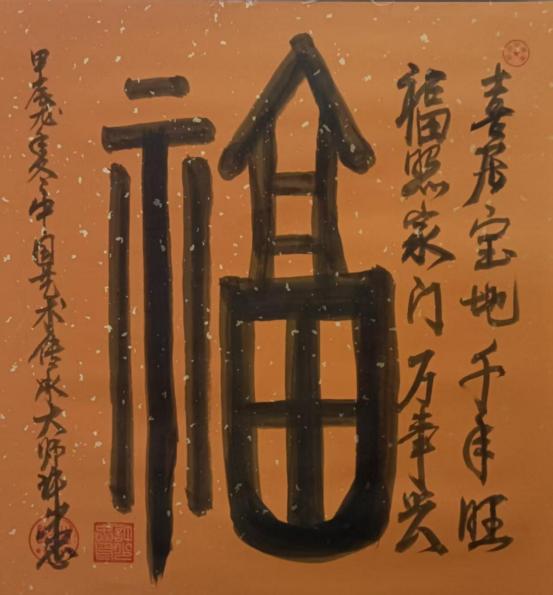 喜居宝地千年旺
福照家门万事兴
福
甲辰 中国艺术传承大师